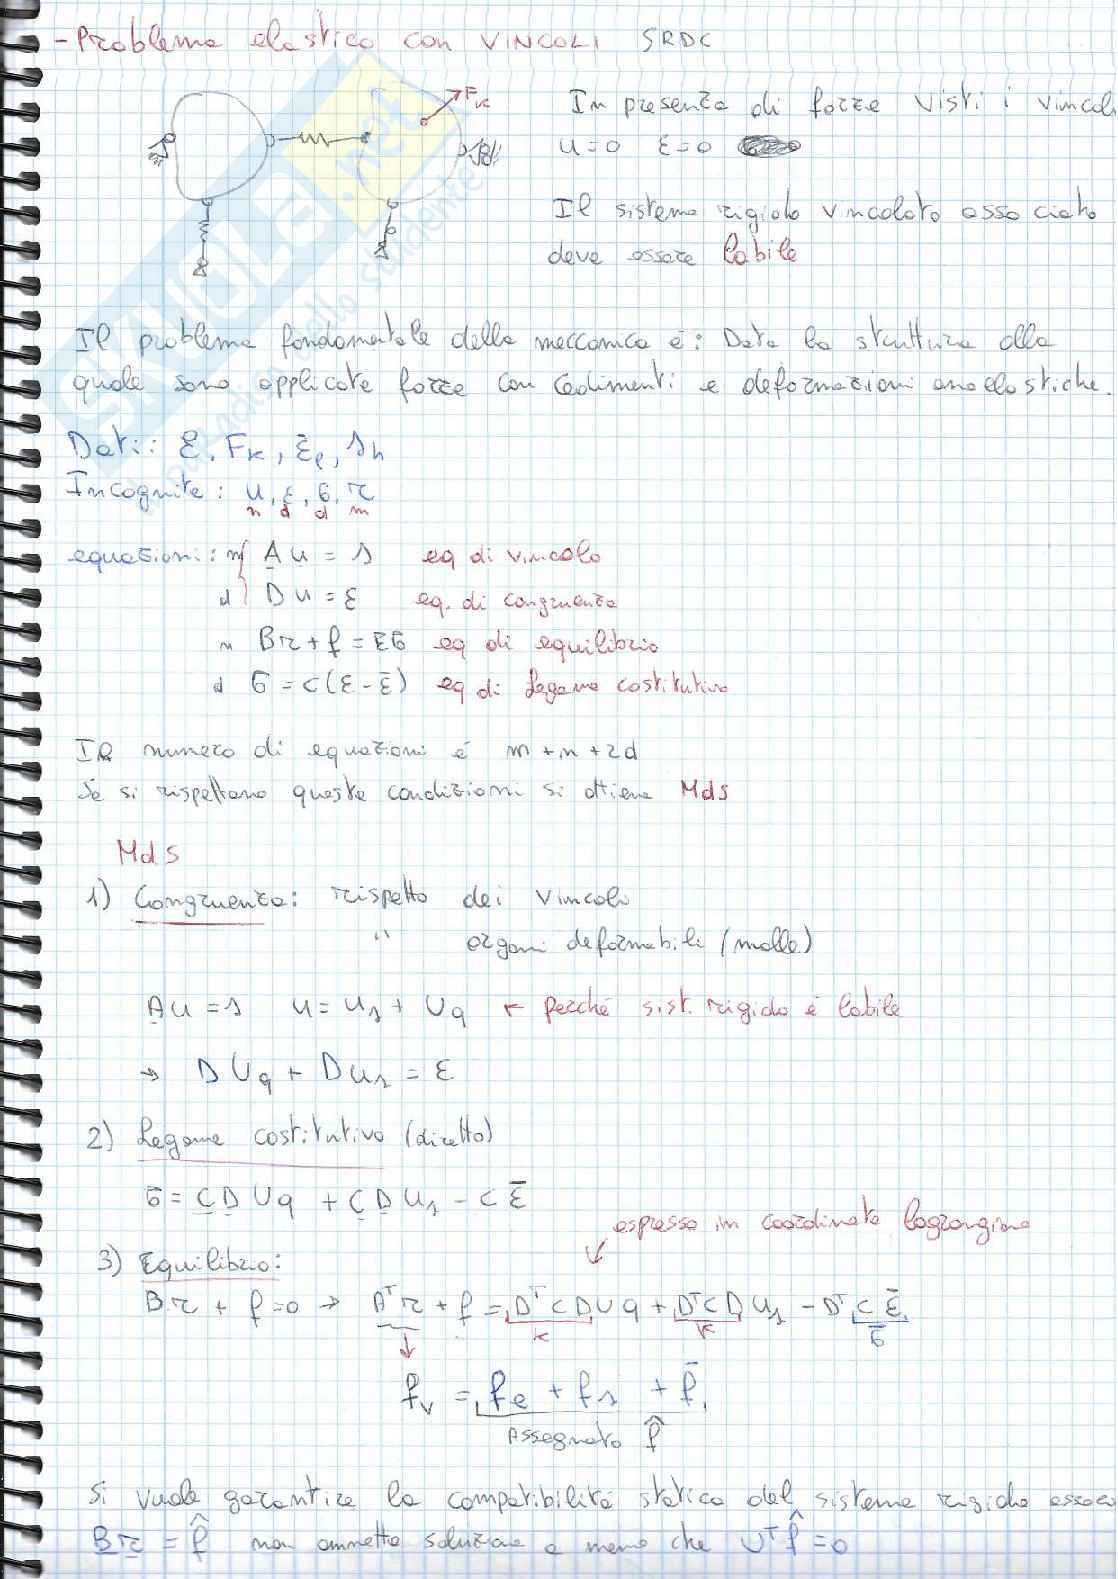 - Problema elastico con VINCOLI SRDC
FK
In presenza di forze visti i vincoli
u=0 ε=0
Il sistema rigido vincolato associato
deve essere labile
Il problema fondamentale della meccanica è: Data la struttura alla
quale sono applicate forze con cedimenti e deformazioni anaelastiche.
Dati: E, FK, ε̄ₑ, sh
Incognite: u, ε, σ, r
n d d m
equazioni: m { A u = s eq di vincolo
d } D u = ε eq. di congruenza
n Br + f = Eσ eq di equilibrio
d σ = c(ε - ε̄) eq di legame costitutivo
Il numero di equazioni è m + n + 2d
Se si rispettano queste condizioni si ottiene MdS
MdS
1) Congruenza: rispetto dei vincoli
" organi deformabili (molle)
Au = s u = us + Uq ← perché sist. rigido è labile
→ D Uq + D us = ε
2) Legame costitutivo (diretto)
σ = C D Uq + C D us - C ε̄
espresso in coordinate lagrangiane
3) Equilibrio:
Br + f = 0 → Aᵀr + f = DᵀCDUq + DᵀCD us - Dᵀ C ε̄
K K σ̄
fv = fe + fs + f̄
Assegnato f̂
Si vuole garantire la compatibilità statica del sistema rigido assoc
Br = f̂ non ammette soluzione a meno che Uᵀf̂ = 0
SKUOLA.net